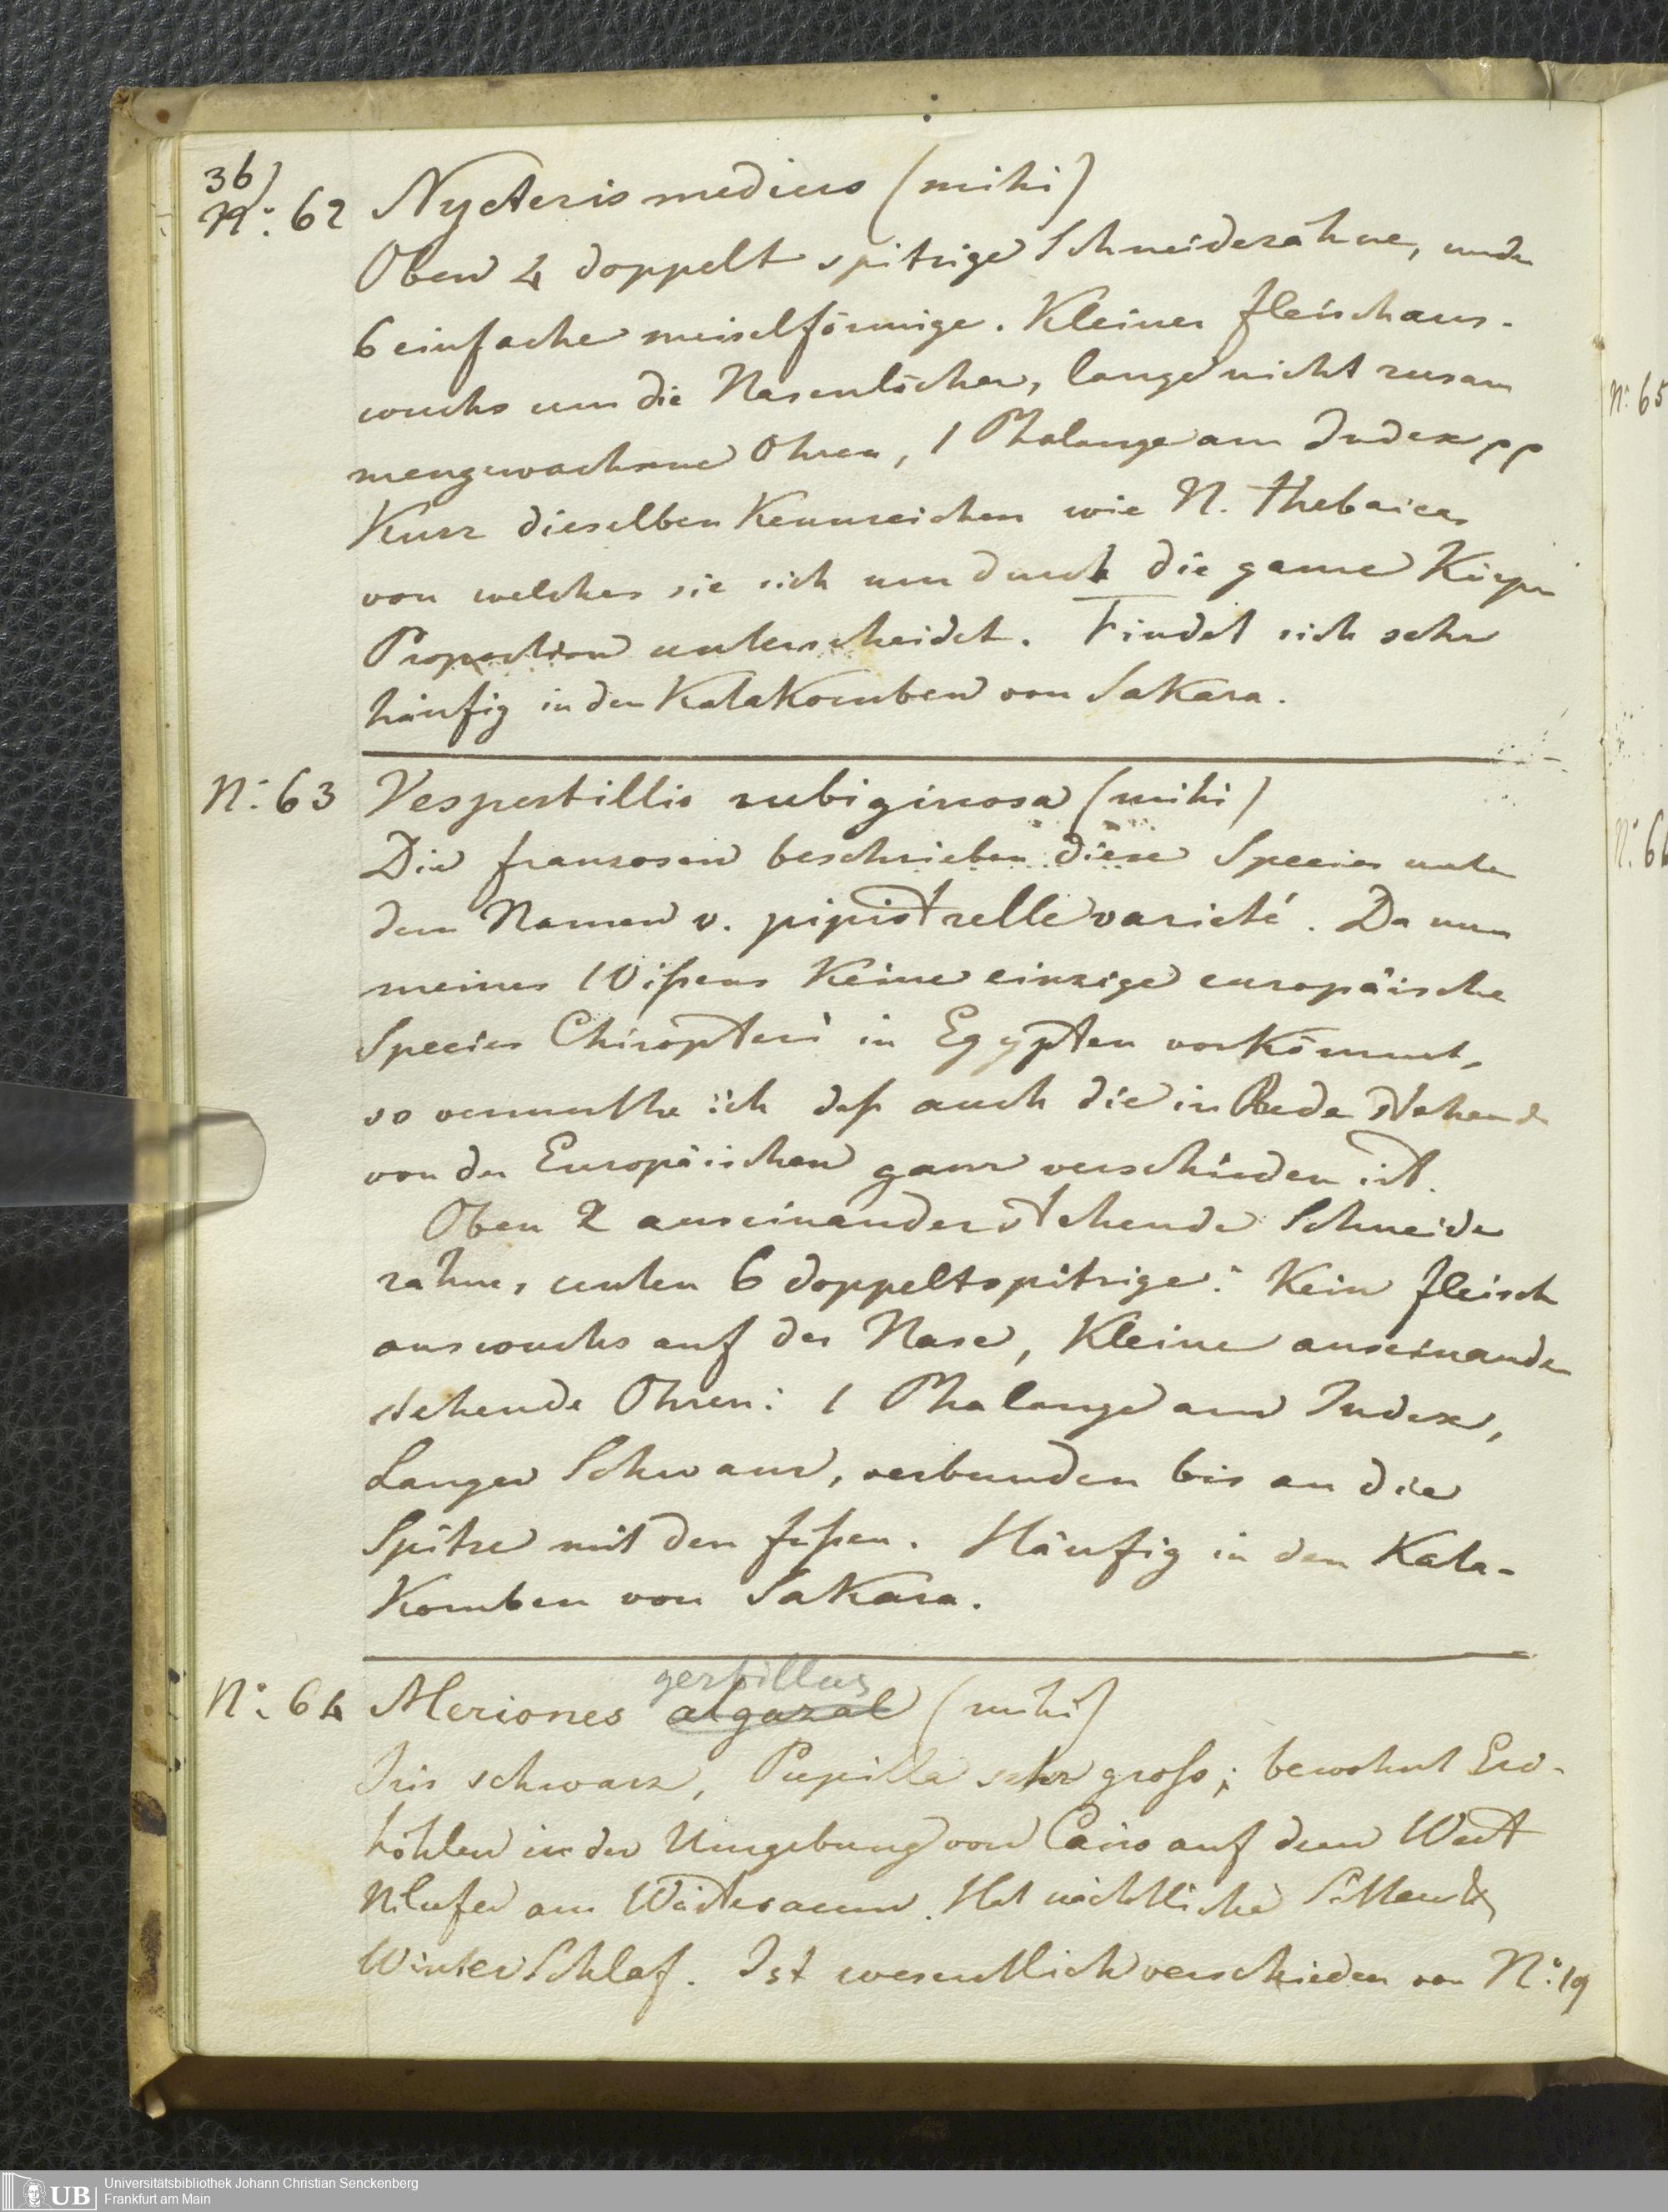 36)
N: 62 Nycteris medius (mihi)
Oben 4 doppelt spitzige Schneidezähne, unten
6 einfache meiselförmige. Kleiner fleischaus-
wuchs um die Nasenlöcher, lange nicht zusam
mengewachsene Ohren, 1 Phalange am Index pp
Kurz dieselben Kennzeichen wie N. thebaica,
von welcher sie sich nur durch die ganze Körper
Proportion unterscheidet. Findet sich sehr
häufig in den Katakomben von Sakara.
N: 63 Vespertillio rubiginosa (mihi)
Die franzosen beschrieben diese Species unter
dem Namen v. pipistrelle varieté. Da nun
meines Wißens keine einzige europäische
Species Chiropteri in Egypten vorkömmt,
so vermuthe ich daß auch die in Rede stehende
von der Europäischen ganz verschieden ist.
Oben 2 auseinanderstehende Schneide
zähne, unten 6 doppeltspitzige. Kein fleisch
auswuchs auf der Nase, Kleine auseinander
stehende Ohren: 1 Phalange am Index,
Langer Schwanz, verbunden bis an die
Spitze mit den fußen. Häufig in den Kata-
Komben von Sakara.
gerbillus
N: 64 Meriones algazal (mihi)
Iris schwarz, Pupilla sehr groß; bewohnt Erd-
höhlen in der Umgebung von Cairo auf dem West
Nilufer am Wüstesaum. Hat nächtliche Sitten &
WinterSchlaf. Ist wesentlich verschieden von N: 19
N: 65
N: 6
UB
Universitätsbibliothek Johann Christian Senckenberg
Frankfurt am Main